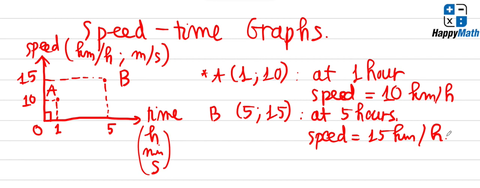 Speed-time Graphs.
HappyMath
speed (km/h ; m/s)
15
B
A
10
0 1 5
time
(h
m
s)
* A (1; 10) : at 1 hour
speed = 10 km/h
B (5; 15) : at 5 hours.
speed = 15 km/h